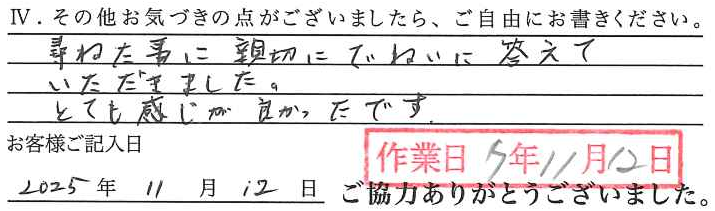 Ⅳ．その他お気づきの点がございましたら、ご自由にお書きください。
尋ねた事に親切にていねいに答えて
いただきました。
とても感じが良かったです.
お客様ご記入日
作業日 7年11月12日
2025年 11月 12日 ご協力ありがとうございました。